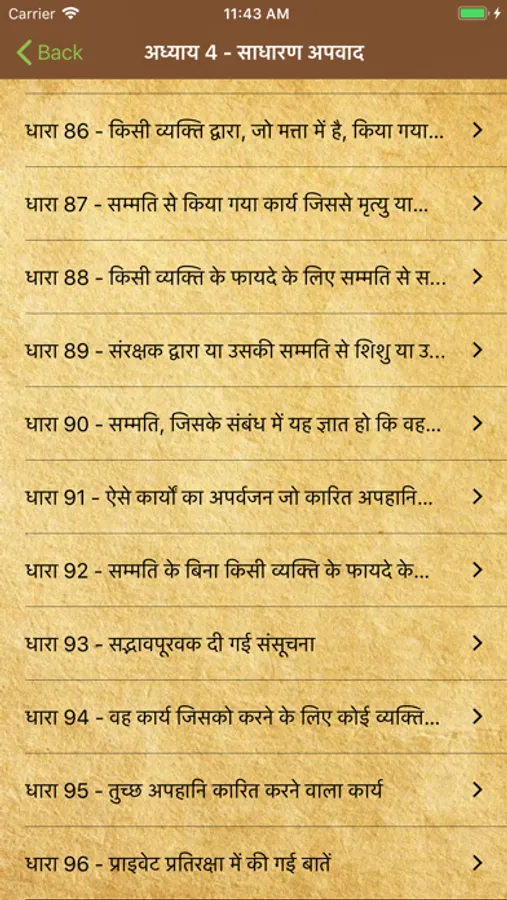 Carrier 11:43 AM
Back अध्याय 4 - साधारण अपवाद
धारा 86 - किसी व्यक्ति द्वारा, जो मत्ता में है, किया गया...
धारा 87 - सम्मति से किया गया कार्य जिससे मृत्यु या...
धारा 88 - किसी व्यक्ति के फायदे के लिए सम्मति से स...
धारा 89 - संरक्षक द्वारा या उसकी सम्मति से शिशु या उ...
धारा 90 - सम्मति, जिसके संबंध में यह ज्ञात हो कि वह...
धारा 91 - ऐसे कार्यों का अपर्वजन जो कारित अपहानि...
धारा 92 - सम्मति के बिना किसी व्यक्ति के फायदे के...
धारा 93 - सद्भावपूरवक दी गई संसूचना
धारा 94 - वह कार्य जिसको करने के लिए कोई व्यक्ति...
धारा 95 - तुच्छ अपहानि कारित करने वाला कार्य
धारा 96 - प्राइवेट प्रतिरक्षा में की गई बातें